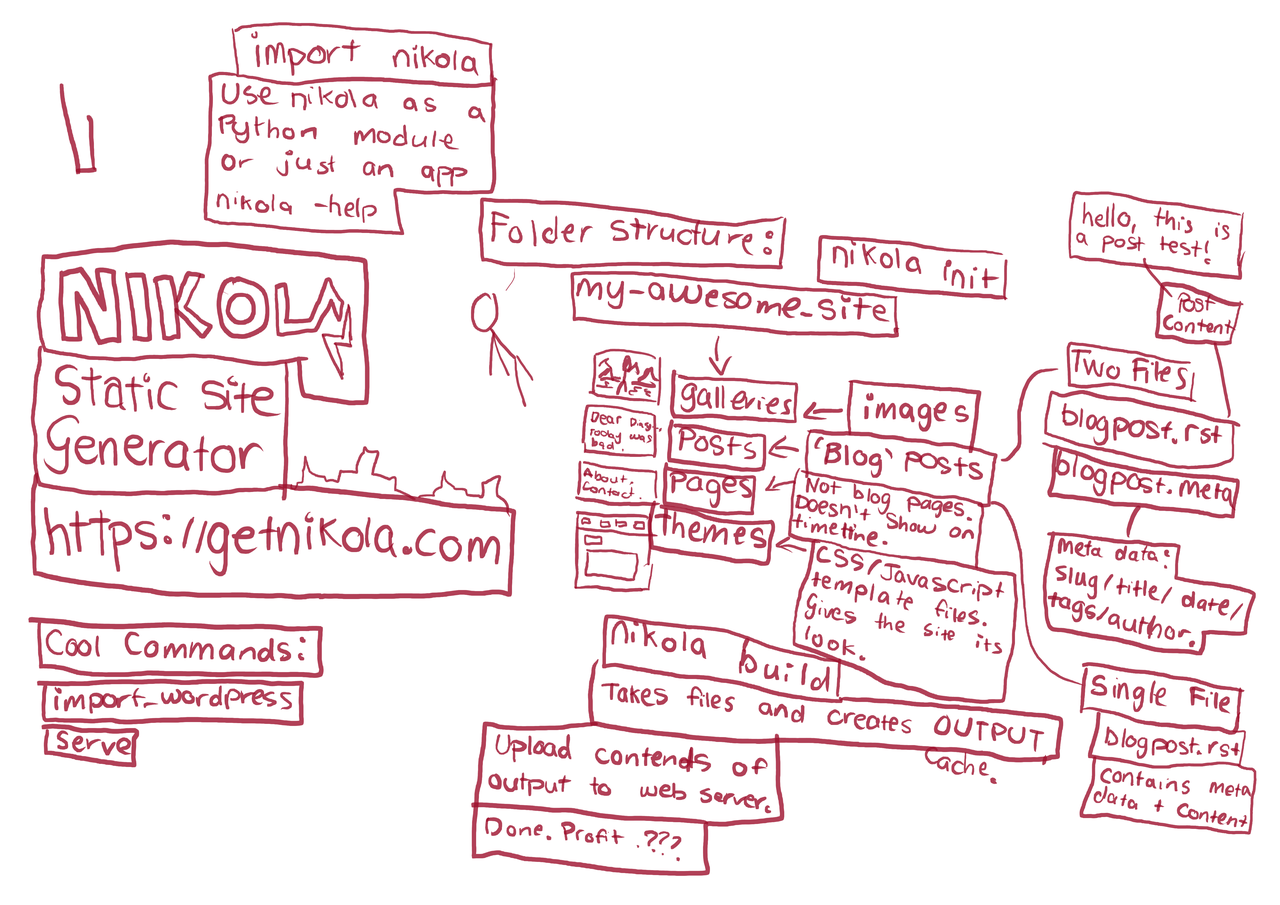 import nikola
Use nikola as a
Python module
or just an app
nikola -help
NIKOLA
Static Site
Generator
https://getnikola.com
Cool Commands:
import_wordpress
serve
Folder Structure:
nikola init
my-awesome-site
galleries
images
Posts
'Blog' posts
Dear Diary,
Today was
bad.
Pages
Not blog pages.
Doesn't show on
timetine.
About.
Contact.
themes
CSS/Javascript
template files.
gives the site its
look.
nikola build
Takes files and creates OUTPUT
Cache.
Upload contends of
output to web server.
Done. Profit .???
hello, this is
a post test!
Post
Content
Two Files
blogpost.rst
blogpost.meta
meta data:
slug/title/date/
tags/author.
Single File
blogpost.rst
contains meta
data + content